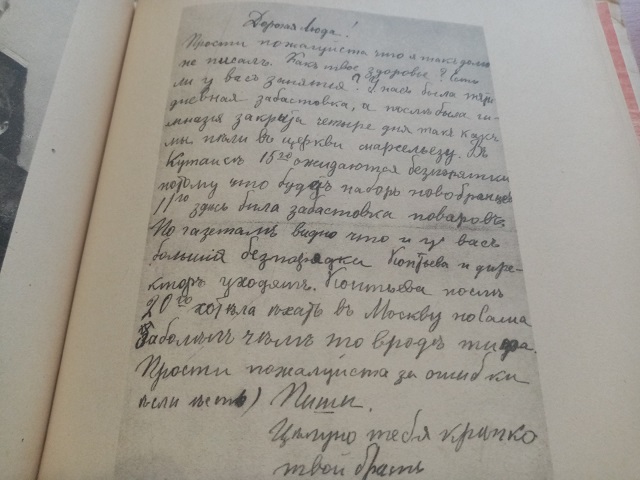 Дорогая Люда!
Прости пожалуйста что я такъ долго
не писалъ. Какъ твое здоровье? Есть
ли у васъ занятія? У насъ была
дневная забастовка, а послѣ была ги-
мназія закрыта четыре дня такъ какъ
мы пѣли въ церкви марсельезу. Въ
Кутаисѣ 15го ожидаются безпорядки
потому что будетъ наборъ новобранцевъ
11го здѣсь была забастовка поваровъ.
По газетамъ видно что и у васъ
большія безпорядки. Коптьева и дире-
кторъ уходятъ. Коптьева послѣ
20го хотѣла ѣхать въ Москву но сама
Заболѣла чѣмъ то вродѣ тифа.
Прости пожалуйста за ошибки
если есть) Пиши.
Цѣлую тебя крѣпко
твой братъ